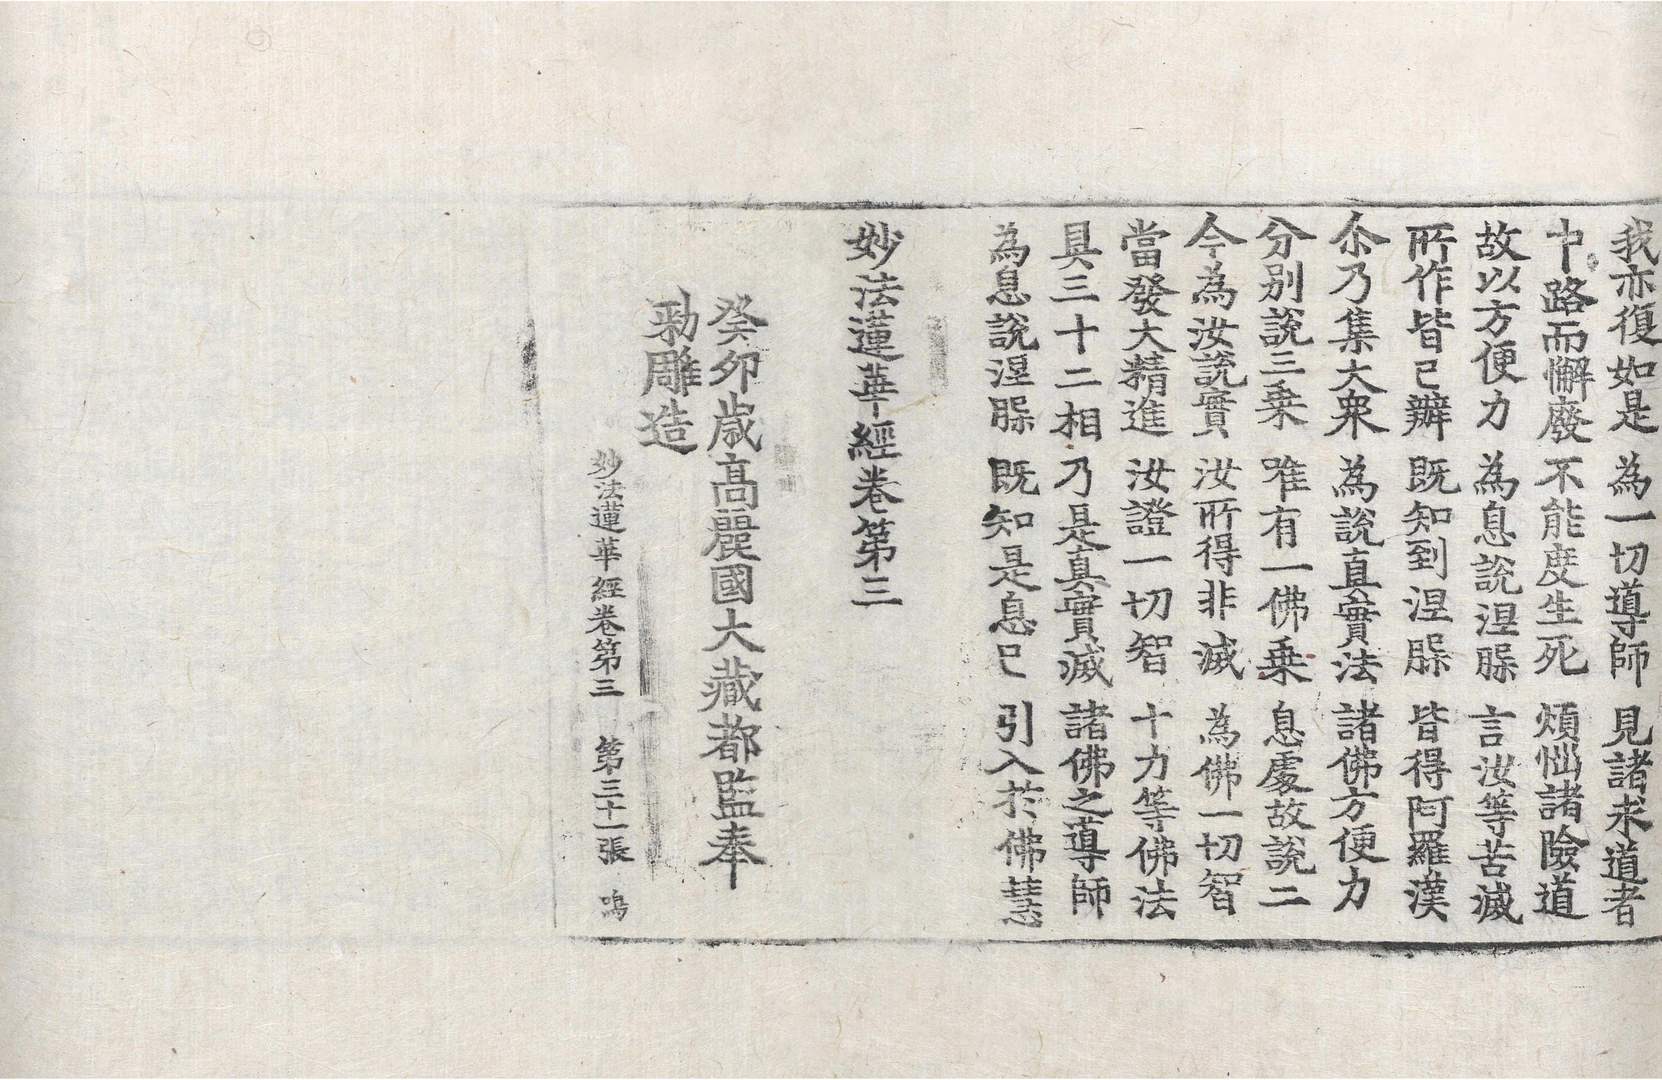 我亦復如是 為一切導師 見諸求道者
中路而懈廢 不能度生死 煩惱諸險道
故以方便力 為息說涅槃 言汝等苦滅
所作皆已辦 既知到涅槃 皆得阿羅漢
尒乃集大衆 為說真實法 諸佛方便力
分別說三乗 唯有一佛乗 息處故說二
今為汝說實 汝所得非滅 為佛一切智
當發大精進 汝證一切智 十力等佛法
具三十二相 乃是真實滅 諸佛之導師
為息說涅槃 既知是息已 引入於佛慧
妙法蓮華經卷第三
癸卯歳高麗國大藏都監奉
勑雕造
妙法蓮華經卷第三 第三十一張 鳴